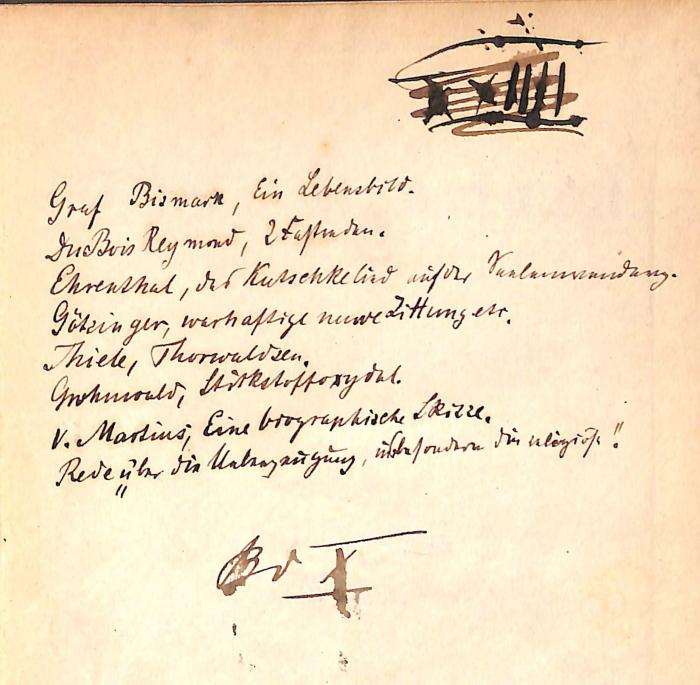 XXIIII
Graf Bismark, Ein Lebensbild.
DuBois Reymond, 2 Festreden.
Ehrenthal, das Kutschkelied auf der Seelenwandrung.
Götzinger, warhaftige nuwe Zittung etc.
Thiele, Thorwaldsen.
Grohnwald, Stickstoffoxydul.
v. Martius, Eine biographische Skizze.
Rede "über die Ueberzeugung, insbesondere die religiöse".
Bd X